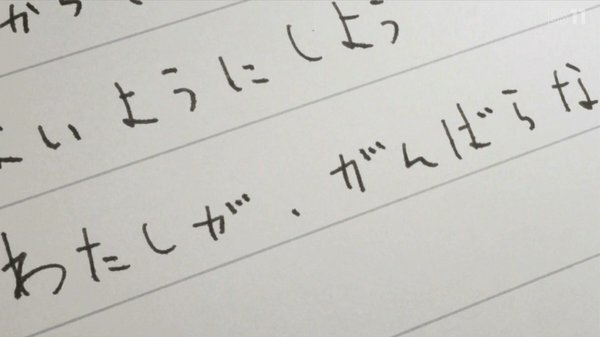 から
よいようにしよう
わたしが、がんばらな